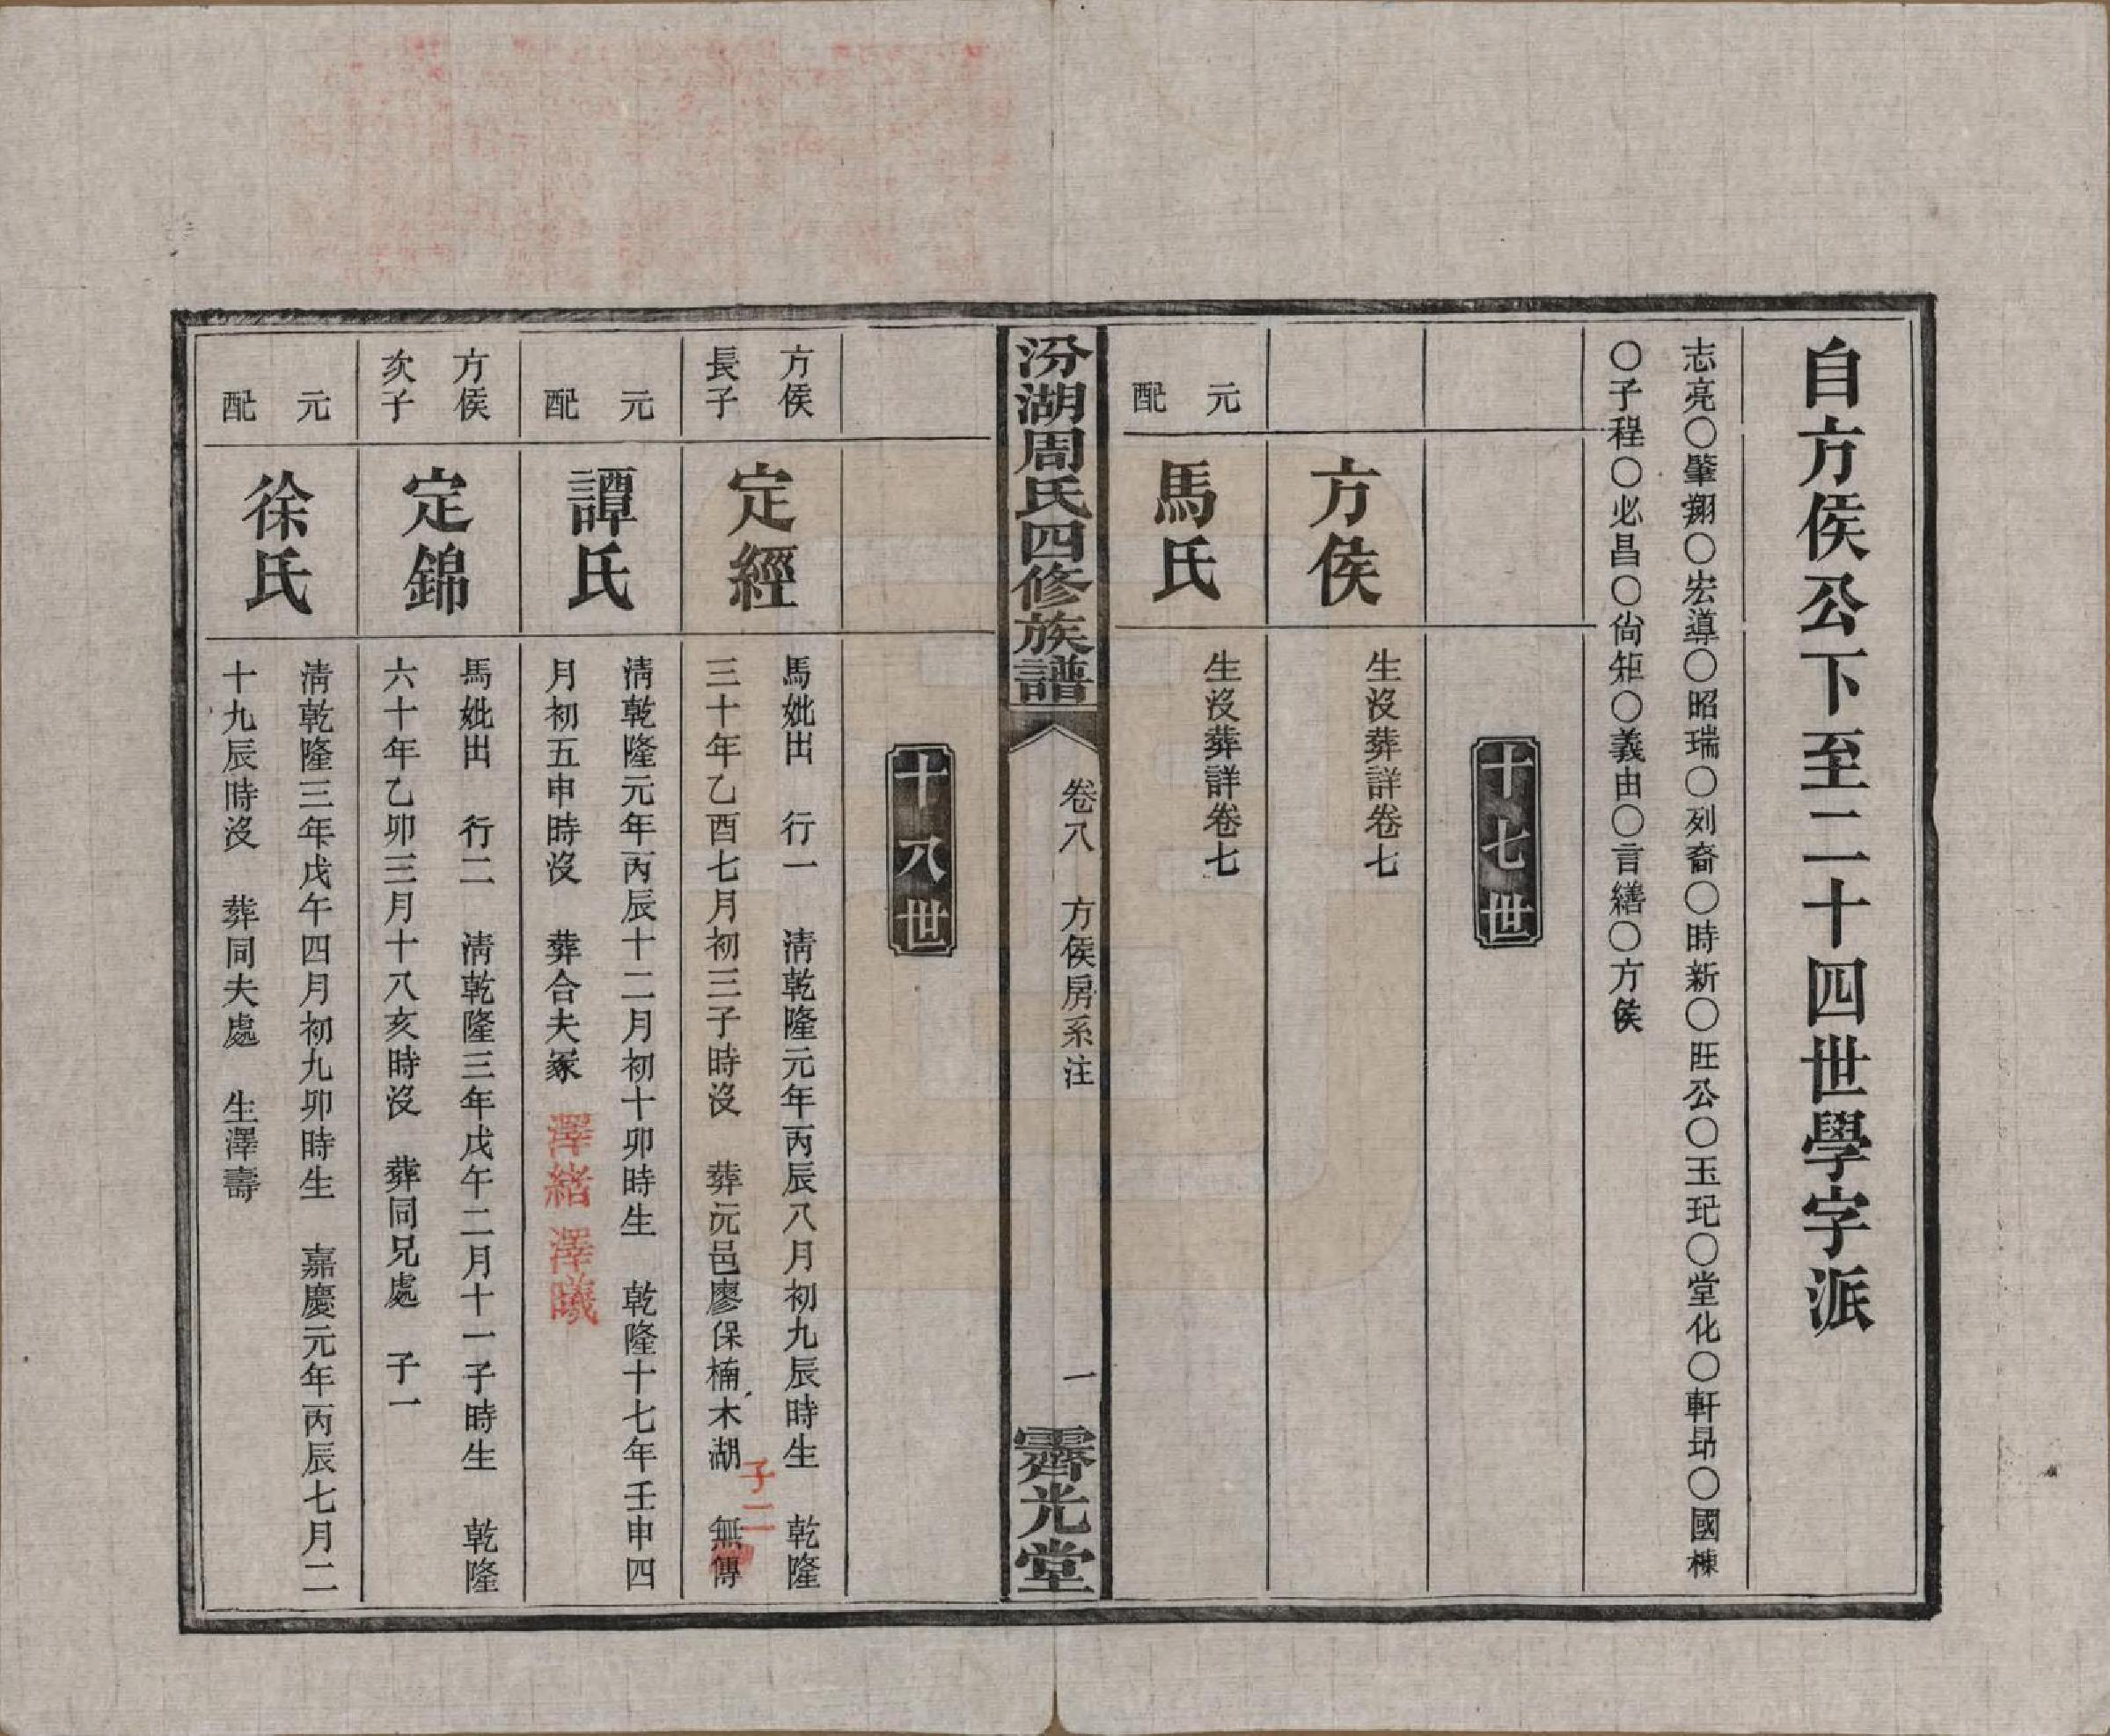 自方侯公下至二十四世學字派
志亮〇肇翔〇宏導〇昭瑞〇列裔〇時新〇旺公〇玉玘〇堂化〇軒昻〇國棟
〇子程〇必昌〇尙矩〇義由〇言繕〇方侯
十七世
方侯
生沒葬詳卷七
元配
馬氏
生沒葬詳卷七
汾湖周氏四修族譜
卷八 方侯房系注
一
霽光堂
十八世
方侯長子
定經
馬妣出 行一 淸乾隆元年丙辰八月初九辰時生 乾隆
三十年乙酉七月初三子時沒 葬沅邑廖保楠木湖 無傳
子二
元配
譚氏
淸乾隆元年丙辰十二月初十卯時生 乾隆十七年壬申四
月初五申時沒 葬合夫冢 澤緒 澤曦
方侯次子
定錦
馬妣出 行二 淸乾隆三年戊午二月十一子時生 乾隆
六十年乙卯三月十八亥時沒 葬同兄處 子一
元配
徐氏
淸乾隆三年戊午四月初九卯時生 嘉慶元年丙辰七月二
十九辰時沒 葬同夫處 生澤壽